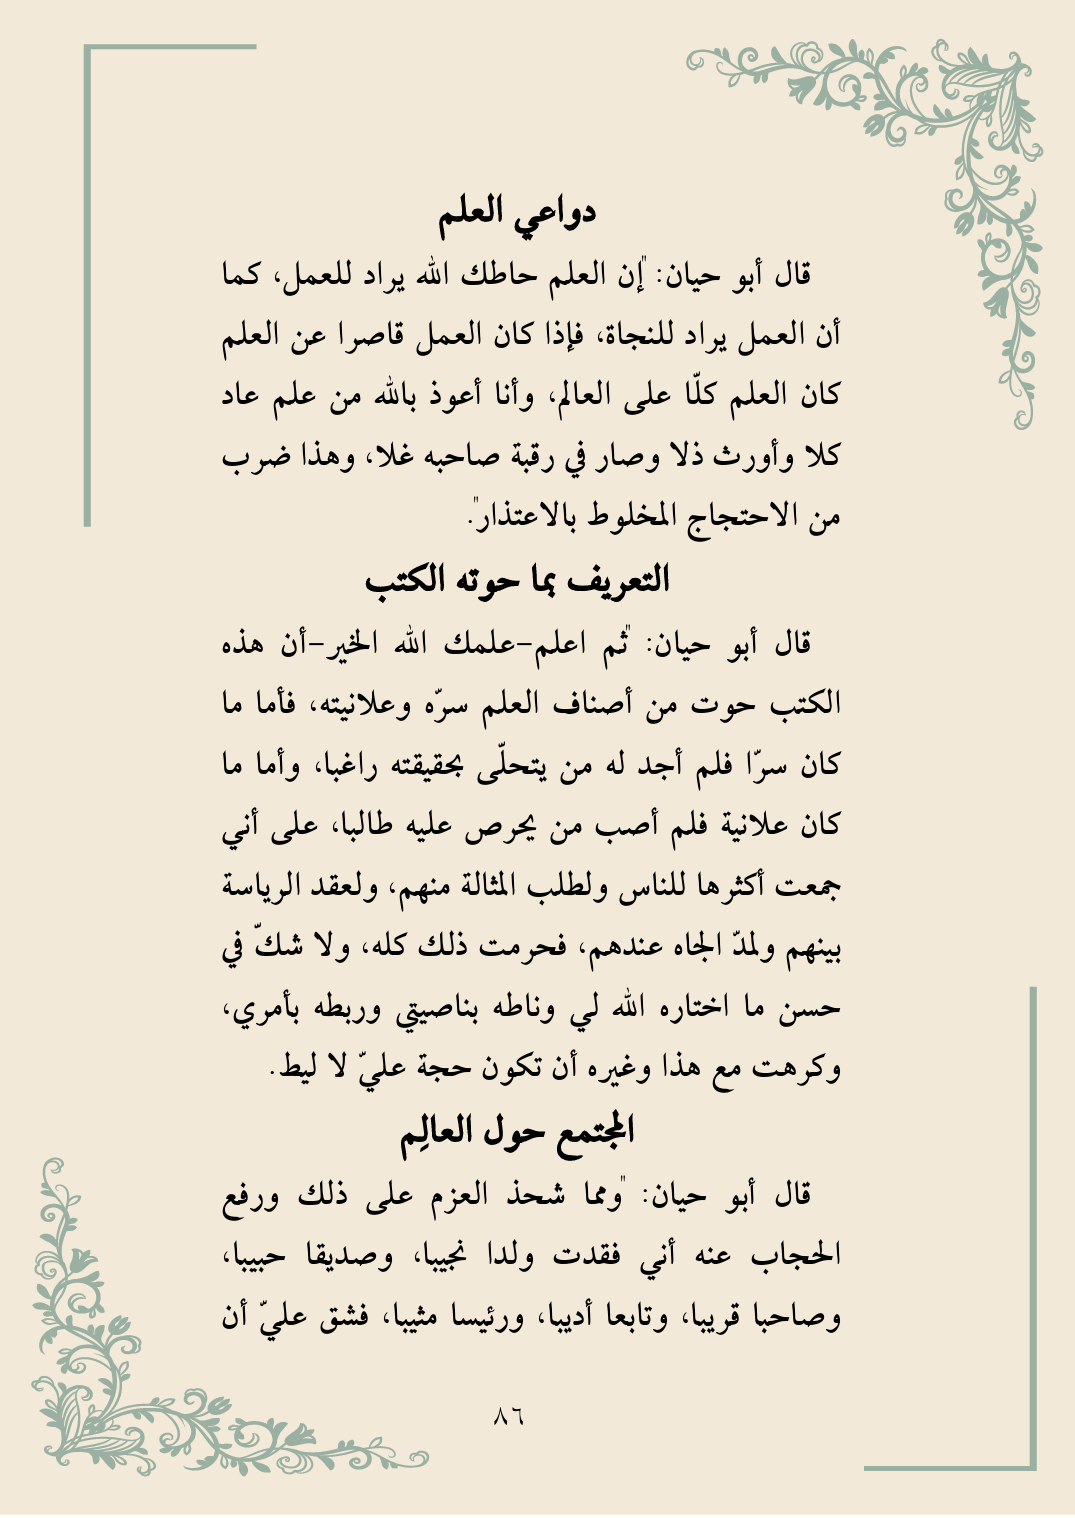 دواعي العلم
قال أبو حيان: "إن العلم حاطك الله يراد للعمل، كما
أن العمل يراد للنجاة، فإذا كان العمل قاصرا عن العلم
كان العلم كلّا على العالم، وأنا أعوذ بالله من علم عاد
كلا وأورث ذلا وصار في رقبة صاحبه غلا، وهذا ضرب
من الاحتجاج المخلوط بالاعتذار".
التعريف بما حوته الكتب
قال أبو حيان: "ثم اعلم-علمك الله الخير-أن هذه
الكتب حوت من أصناف العلم سرّه وعلانيته، فأما ما
كان سرّا فلم أجد له من يتحلّى بحقيقته راغبا، وأما ما
كان علانية فلم أصب من يحرص عليه طالبا، على أني
جمعت أكثرها للناس ولطلب المثالة منهم، ولعقد الرياسة
بينهم ولمدّ الجاه عندهم، فحرمت ذلك كله، ولا شكّ في
حسن ما اختاره الله لي وناطه بناصيتي وربطه بأمري،
وكرهت مع هذا وغيره أن تكون حجة عليّ لا ليط.
المجتمع حول العالِم
قال أبو حيان: "ومما شحذ العزم على ذلك ورفع
الحجاب عنه أني فقدت ولدا نجيبا، وصديقا حبيبا،
وصاحبا قريبا، وتابعا أديبا، ورئيسا مثيبا، فشق عليّ أن
٨٦